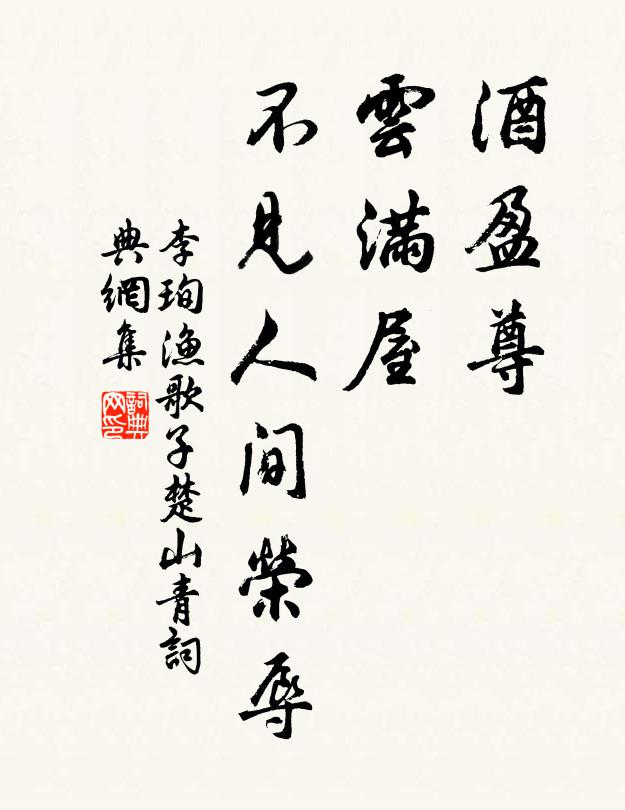 酒盈尊
雲滿屋
不見人間榮辱
李珣漁歌子楚山青詞
典網集
詞典
网印